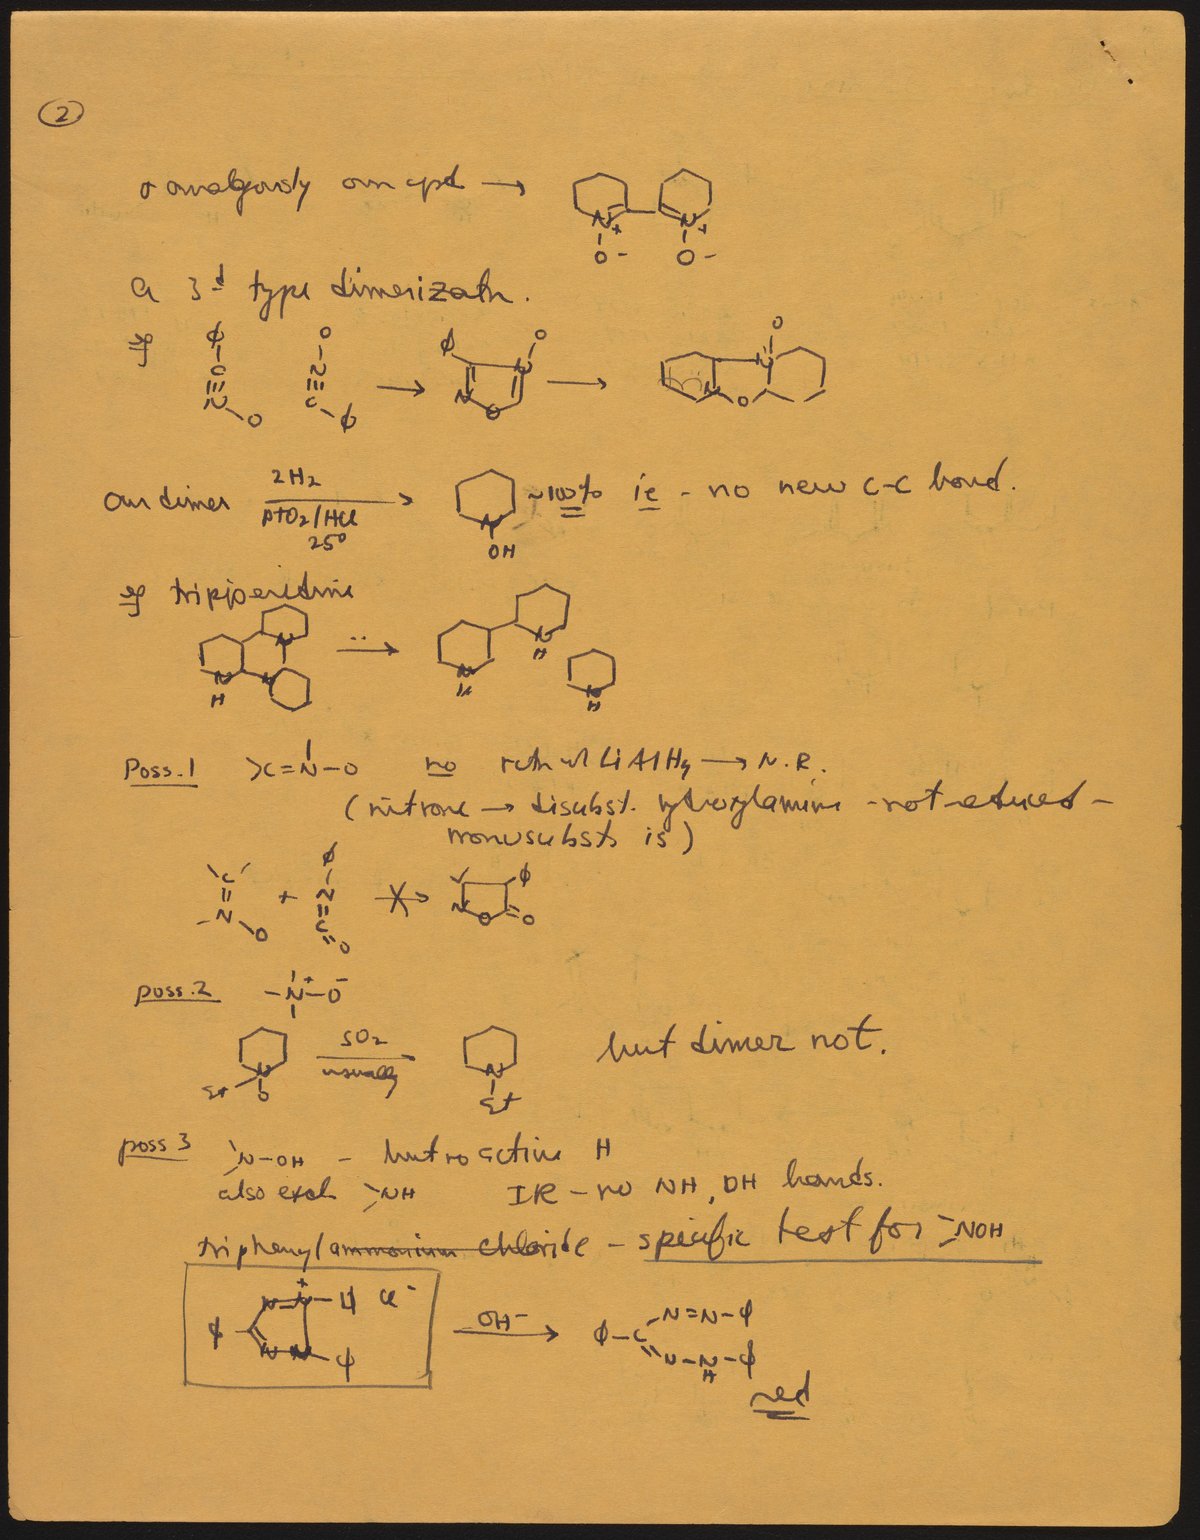 2
analogously our cpd →
N+ N+
O- O-
a 3rd type dimerizatn.
eg φ-C≡N-O O-N≡C-φ → φ N O N O → N O N O
our dimer 2H2 PtO2/HCl 25° → N OH ~100% ie - no new C-C bond.
eg tripiperidine
N N N H → N H N H N H
Poss.1 >C=N-O no rctn w/ LiAlH4 → N.R.
(nitrone → disubst. hydroxylamine - not reduced -
monosubsts is)
C=N-O + φ-N=C=O → φ N O =O
poss.2 -N+-O-
Et N O SO2 usually → N Et but dimer not.
poss 3 >N-OH - but no active H
also excl >NH IR - no NH, OH bands.
triphenyl ammonium chloride - specific test for >NOH
φ N N+ -φ Cl- N N -φ OH- → φ-C N=N-φ N-N-φ H
red